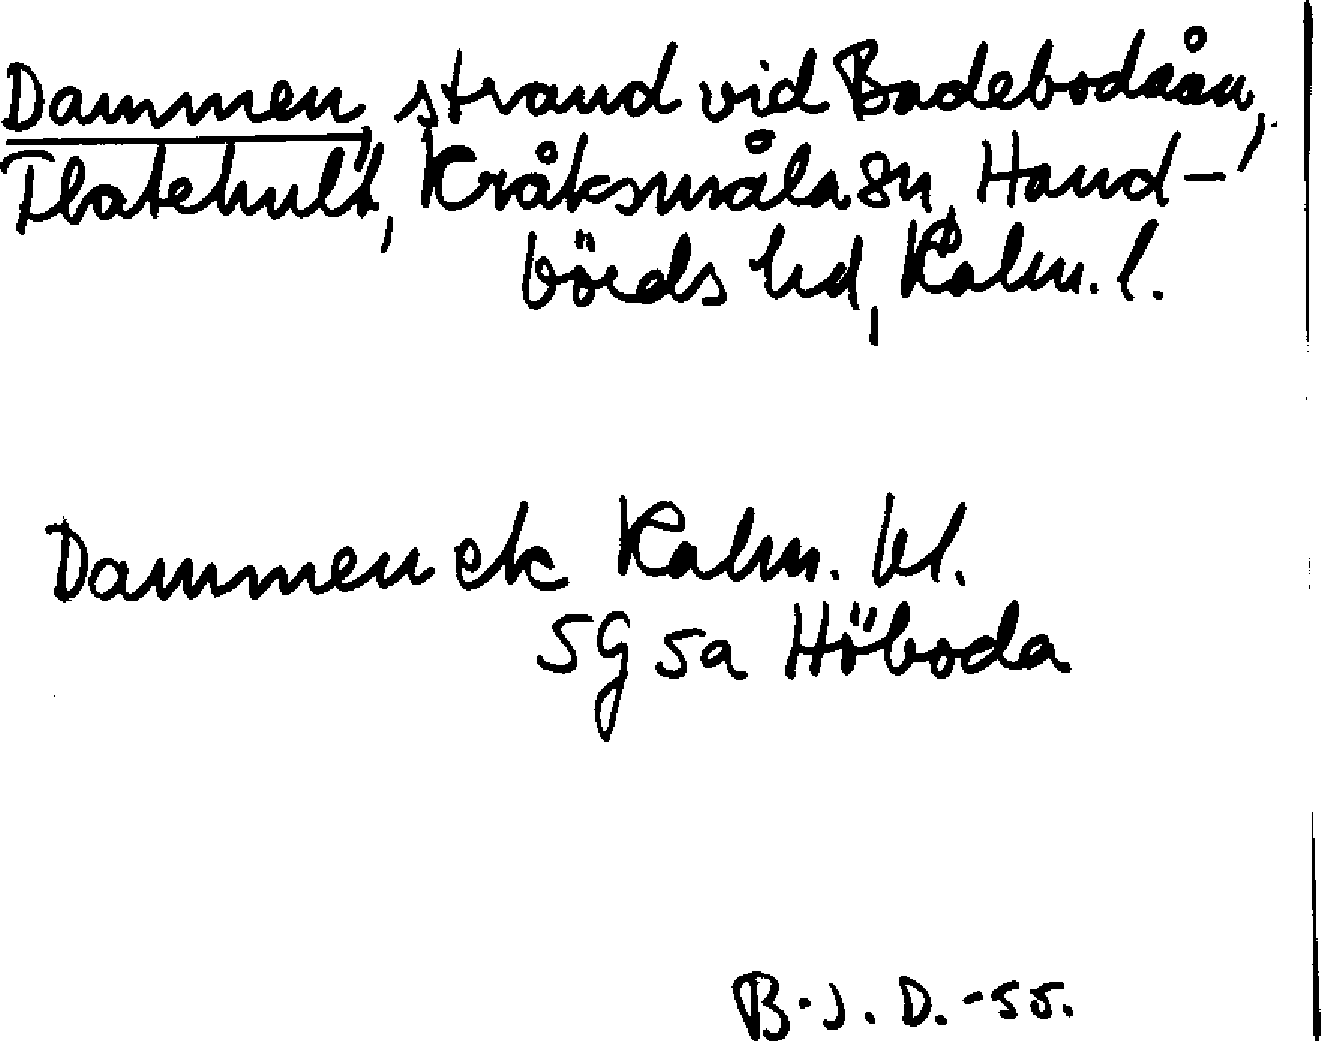 Dammen, strand vid Badebodaån,
Flatehult, Kråksmåla sn, Hand-
börds hd, Kalm. l.
Dammen ek Kalm. kl.
5G 5a Höboda
B.J.D.-55.